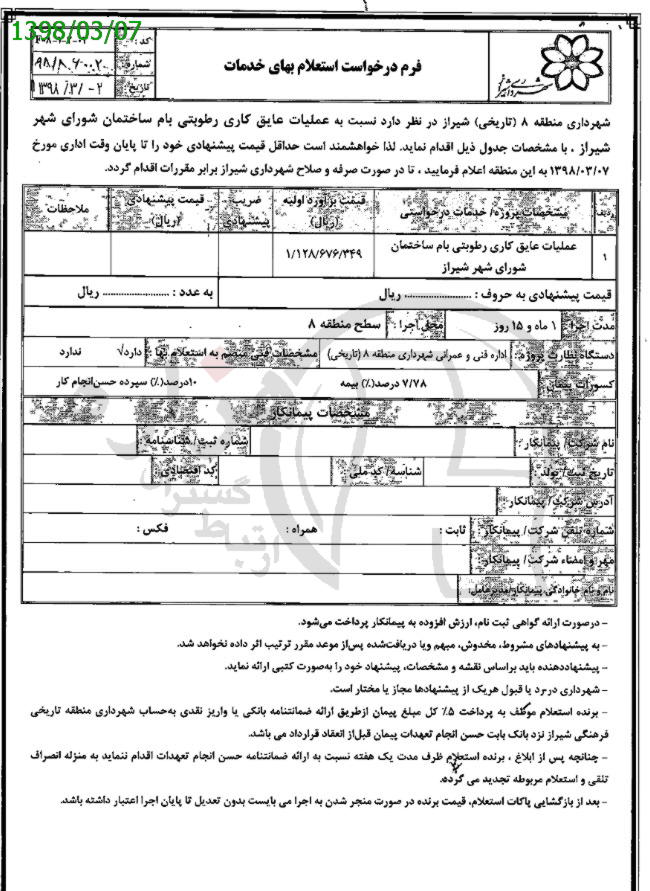 1398/03/07
کد :
شماره :
تاریخ : ۱۳۹۸/۳/-۲
فرم درخواست استعلام بهای خدمات
شهرداری منطقه ۸ (تاریخی) شیراز در نظر دارد نسبت به عملیات عایق کاری رطوبتی بام ساختمان شورای شهر
شیراز ، با مشخصات جدول ذیل اقدام نماید. لذا خواهشمند است حداقل قیمت پیشنهادی خود را تا پایان وقت اداری مورخ
۱۳۹۸/۰۳/۰۷ به این منطقه اعلام فرمایید ، تا در صورت صرفه و صلاح شهرداری شیراز برابر مقررات اقدام گردد.
ردیف مشخصات پروژه/ خدمات درخواستی قیمت برآورد اولیه (ریال) ضریب پیشنهادی قیمت پیشنهادی (ریال) ملاحظات
۱ عملیات عایق کاری رطوبتی بام ساختمان ۱/۱۲۸/۶۷۶/۳۴۹
شورای شهر شیراز
قیمت پیشنهادی به حروف : ...................... ریال به عدد : ...................... ریال
مدت اجرا : ۱ ماه و ۱۵ روز محل اجرا : سطح منطقه ۸
دستگاه نظارت پروژه : اداره فنی و عمرانی شهرداری منطقه ۸ (تاریخی) مشخصات فنی منضم به استعلام بها : دارد√ ندارد
کسورات پیمان : ۷/۷۸ درصد(٪) بیمه ۱۰درصد(٪) سپرده حسن‌انجام کار
مشخصات پیمانکار
نام شرکت/ پیمانکار : شماره ثبت/ شناسنامه :
تاریخ ثبت/ تولد : شناسه/ کد ملی : کد اقتصادی :
آدرس شرکت/ پیمانکار :
شماره تلفن شرکت/ پیمانکار : ثابت : همراه : فکس :
مهر و امضاء شرکت/ پیمانکار :
نام و نام خانوادگی پیمانکار/مدیرعامل:
- درصورت ارائه گواهی ثبت نام، ارزش افزوده به پیمانکار پرداخت می‌شود.
- به پیشنهادهای مشروط، مخدوش، مبهم ویا دریافت‌شده پس‌از موعد مقرر ترتیب اثر داده نخواهد شد.
- پیشنهاددهنده باید براساس نقشه و مشخصات، پیشنهاد خود را به‌صورت کتبی ارائه نماید.
- شهرداری در رد یا قبول هریک از پیشنهادها مجاز یا مختار است.
- برنده استعلام موظف به پرداخت ۵٪ کل مبلغ پیمان ازطریق ارائه ضمانتنامه بانکی یا واریز نقدی به‌حساب شهرداری منطقه تاریخی
فرهنگی شیراز نزد بانک بابت حسن انجام تعهدات پیمان قبل‌از انعقاد قرارداد می باشد.
- چنانچه پس از ابلاغ ، برنده استعلام ظرف مدت یک هفته نسبت به ارائه ضمانتنامه حسن انجام تعهدات اقدام ننماید به منزله انصراف
تلقی و استعلام مربوطه تجدید می گردد.
- بعد از بازگشایی پاکات استعلام، قیمت برنده در صورت منجر شدن به اجرا می بایست بدون تعدیل تا پایان اجرا اعتبار داشته باشد.